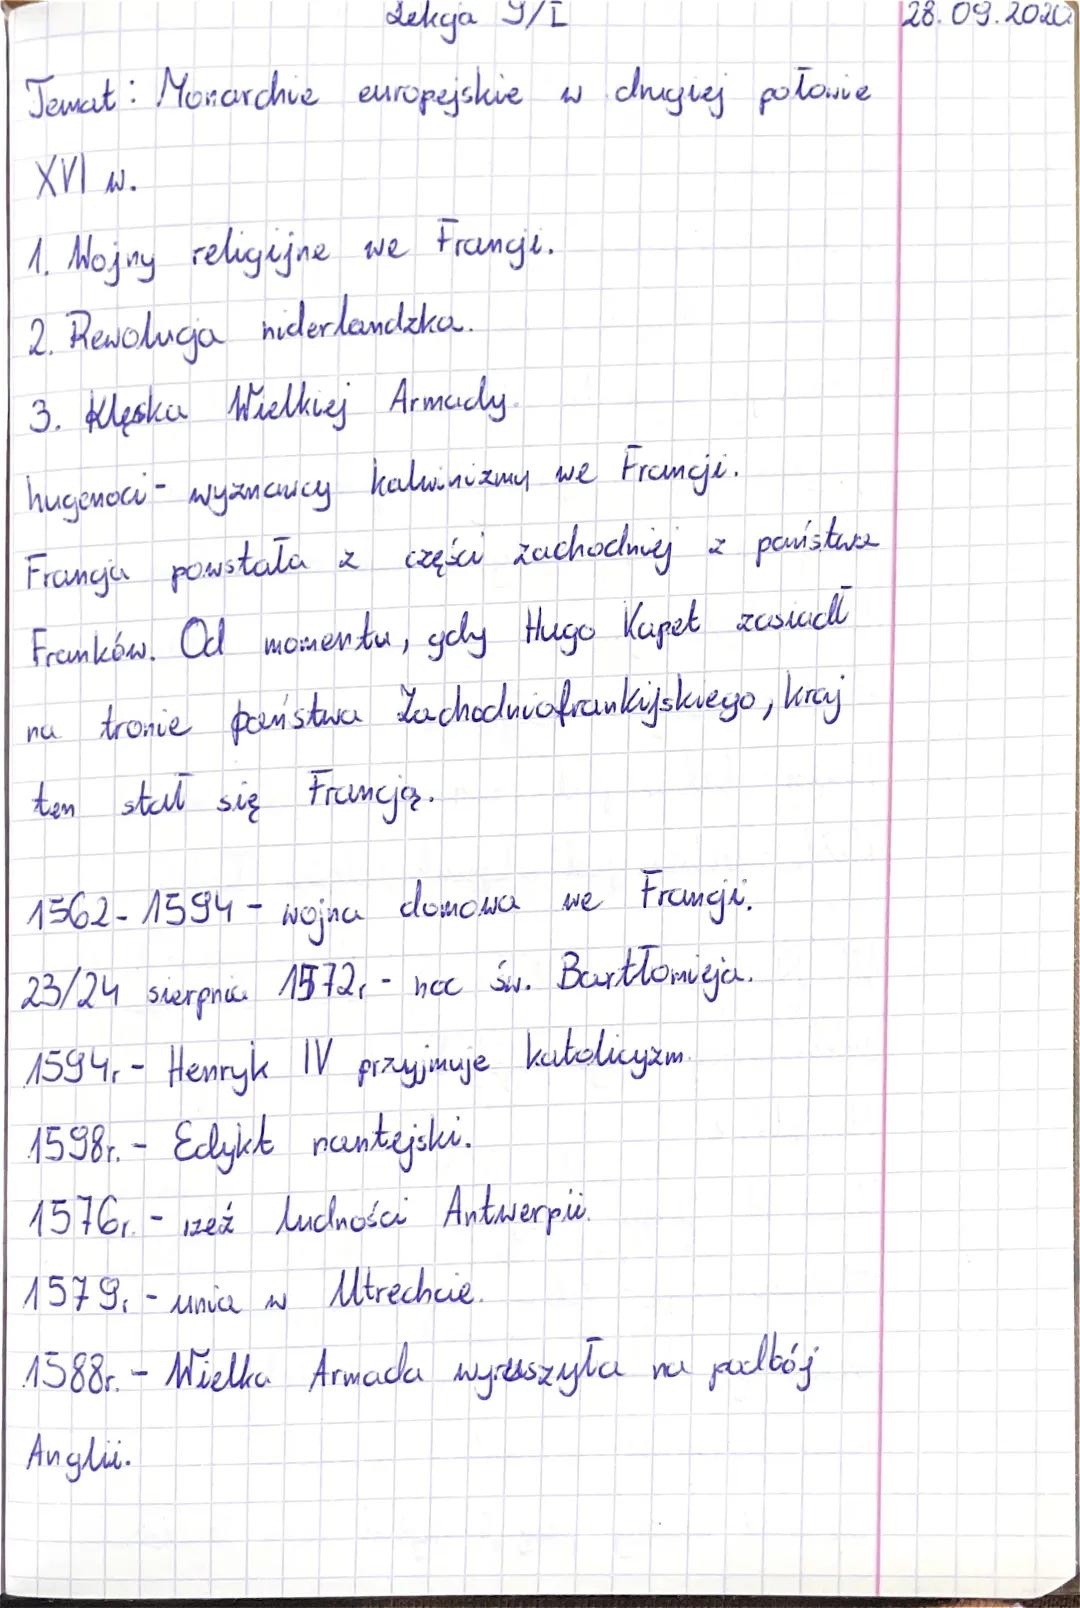 Lekcja 9/I 28.09.2020
Temat: Monarchie europejskie w drugiej połowie
XVI w.
1. Wojny religijne we Francji.
2. Rewolucja niderlandzka.
3. Klęska Wielkiej Armady.
hugenoci - wyznawcy kalwinizmu we Francji.
Francja powstała z części zachodniej z państwa
Franków. Od momentu, gdy Hugo Kapet zasiadł
na tronie państwa Zachodniofrankijskiego, kraj
ten stał się Francją.
1562-1594 - wojna domowa we Francji.
23/24 sierpnia 1572r. - noc św. Bartłomieja.
1594r. - Henryk IV przyjmuje katolicyzm.
1598r. - Edykt nantejski.
1576r. - rzeź ludności Antwerpii.
1579r. - unia w Utrechcie.
1588r. - Wielka Armada wyruszyła na podbój
Anglii.